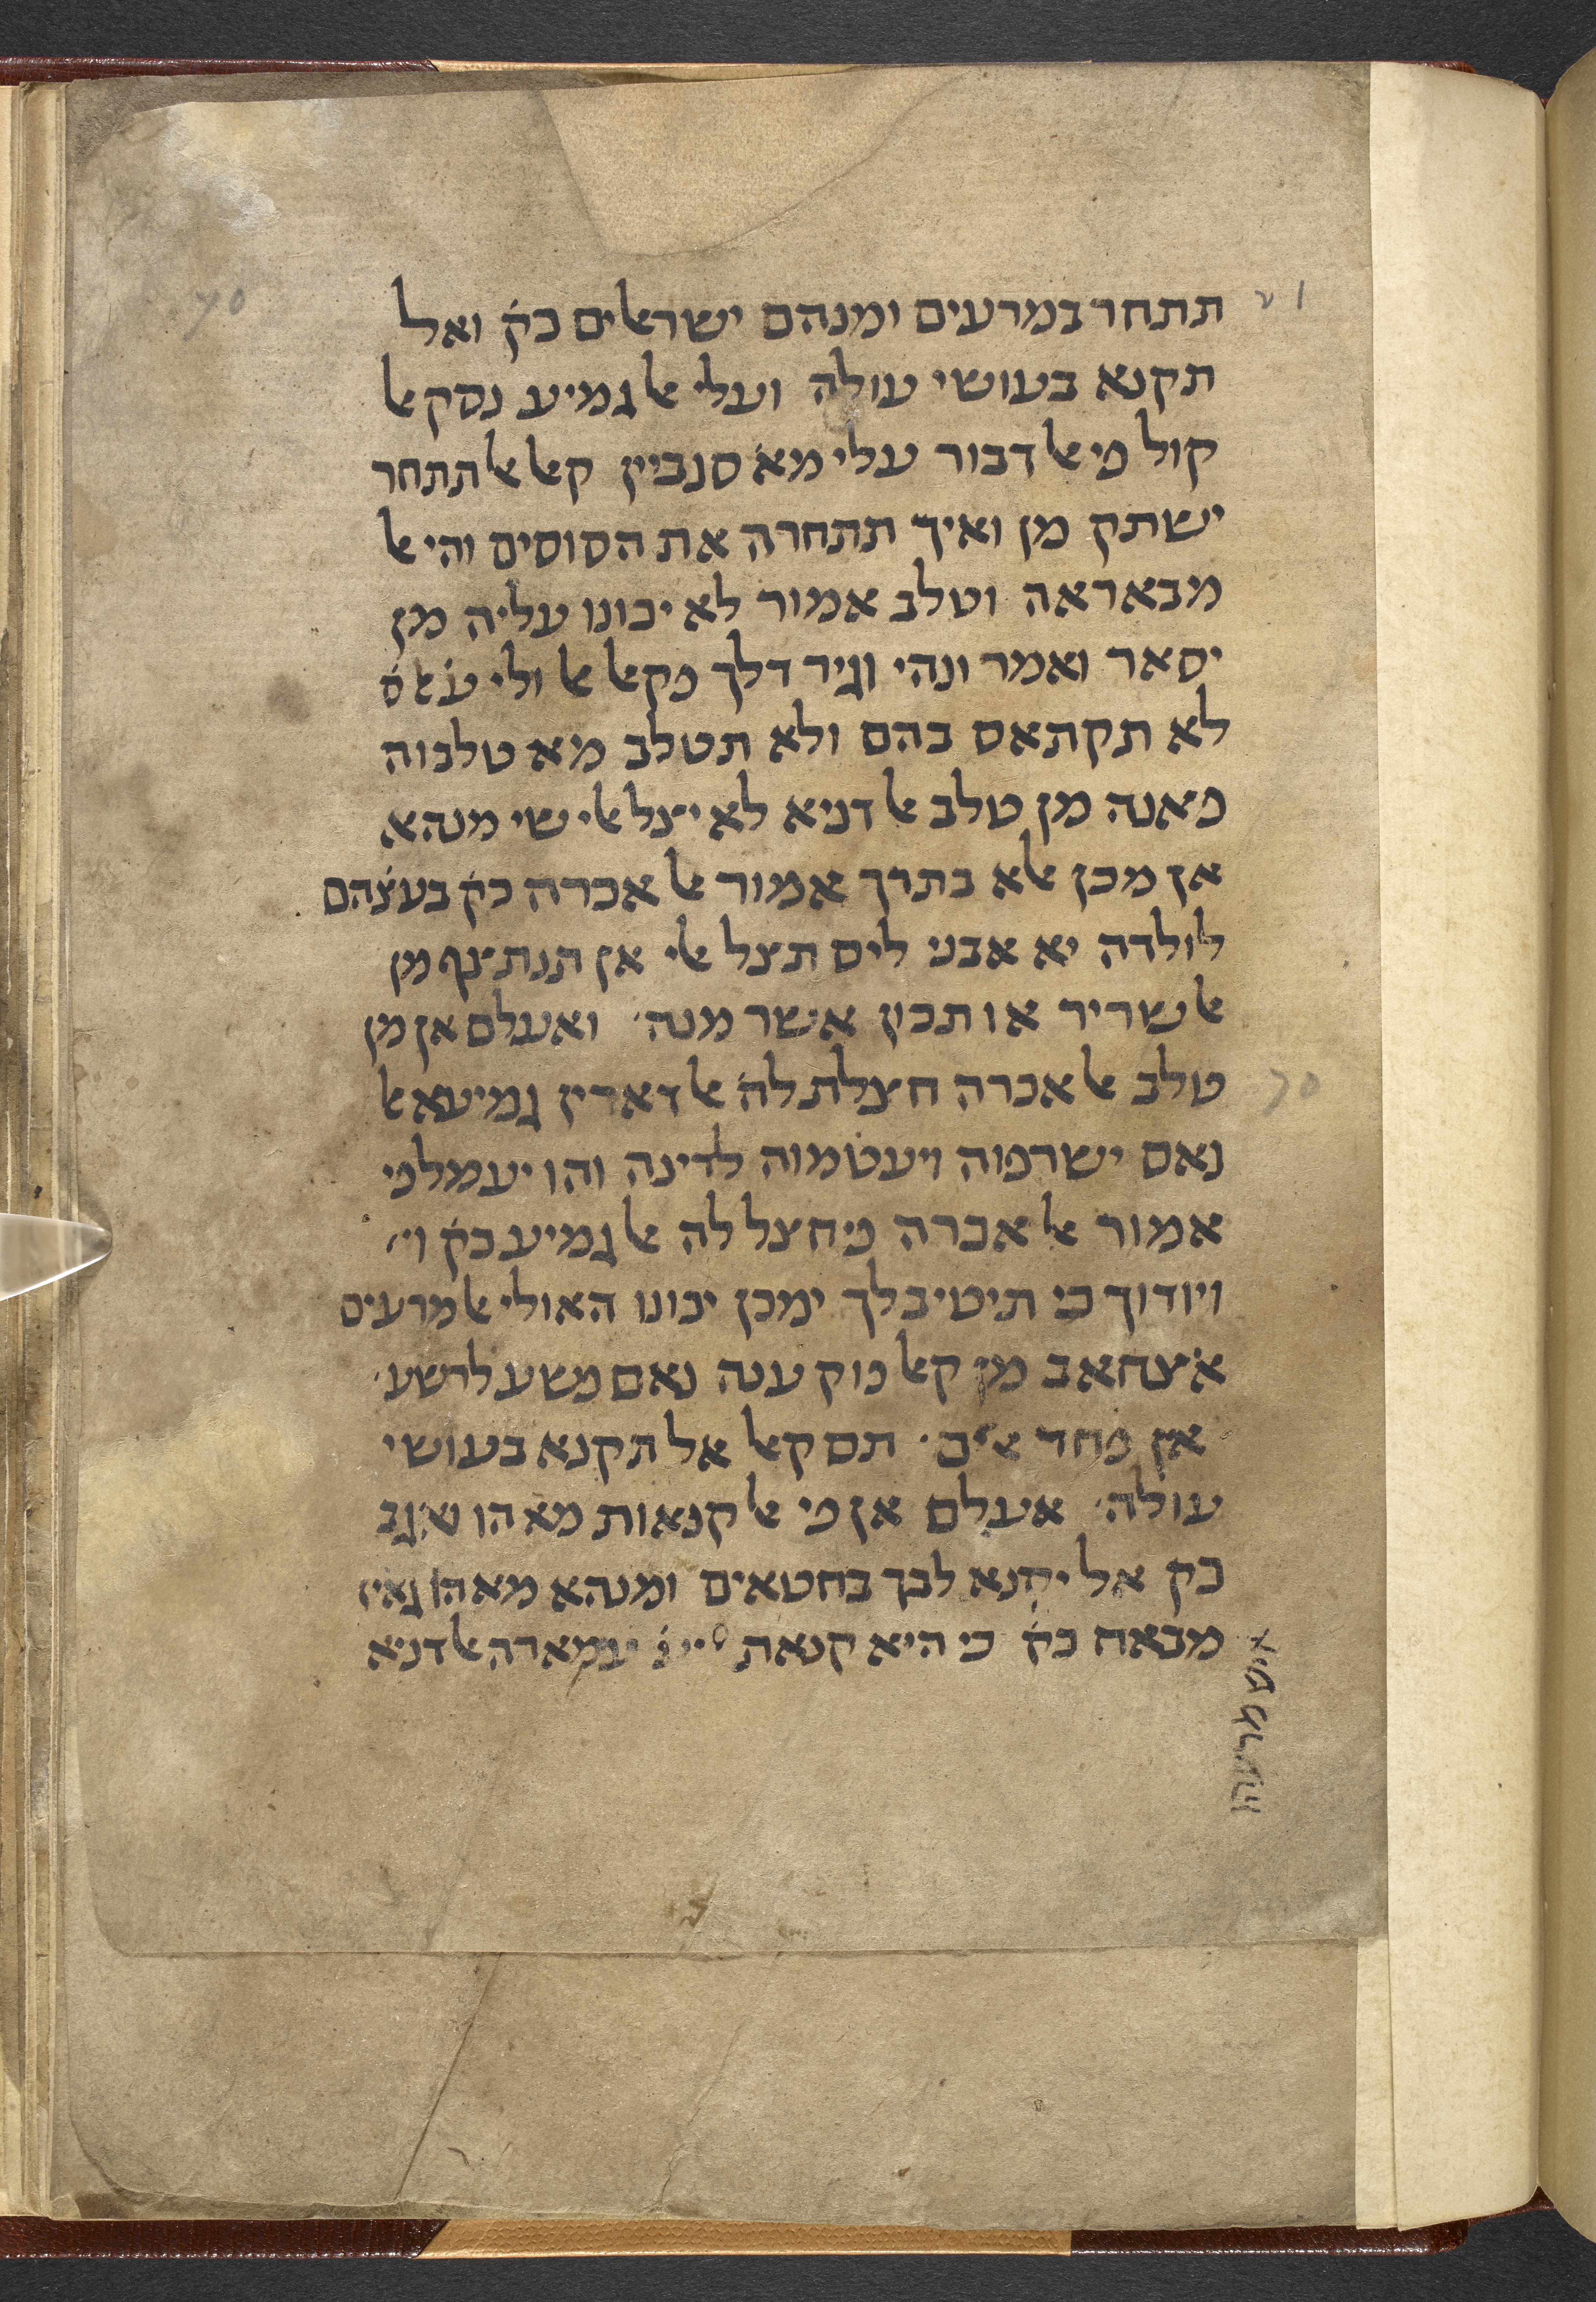 תתחר במרעים ומנהם ישראלים כק̇ ואל
תקנא בעושי עולה ועלי אלגמיע נסק אל
קול פי אלדבור עלי מא סנבין קאל אל תתחר
ישתק מן ואיך תתחרה את הסוסים והי אל
מבאראה וטלב אמור לא יכונו עליה מן
יסאר ואמר ונהי וגיר דלך פקאל אל ולי
לא תקתאס בהם ולא תטלב מא טלבוה
פאנה מן טלב אלדניא לא יצל אלי שי מנהא
אן מכן אלא בתרך אמור אלאכרה כק̇ בעצ̇הם
לולדה יא אבני ליס תצל אלי אן תנתצף מן
אלשריר או תכון אשר מנה ואעלם אן מן
טלב אלאכרה חצלת לה אלדארין גמיעא אל
נאס ישרפוה ויעט̇מוה לדינה והו יעמל פי
אמור אלאכרה פיחצל לה אלגמיע כק̇ וי
ויודוך כי תיטיב לך ימכן יכונו האולי אלמרעים
אצחאב מן קאל פוק ענה נאם פשע לרשע
אין פחד א׳ם תם קאל אל תקנא בעושי
עולה אעלם אן פי אלקנאות מא הו ואגב
כק אל יקנא לבך בחטאים ומנהא מא הו גאיז
מבאח כק̇ כי היא קנאת עמארה אלדניא